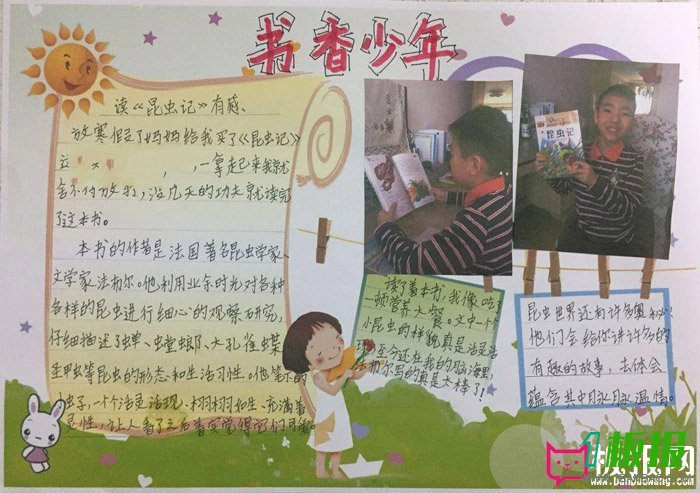 书香少年
读《昆虫记》有感
放寒假了妈妈给我买了《昆虫记》
一拿起来我就
舍不得放下，没几天的功夫就读完
了这本书。
本书的作者是法国著名昆虫学家、
文学家法布尔。他利用业余时光对各种
各样的昆虫进行细心的观察研究，
仔细描述了蝉、螳螂、大孔雀蝶
等昆虫的形态和生活习性。他笔下的
虫子，一个个活灵活现、栩栩如生、充满着
灵性，让人看了之后着实觉得它们可
昆虫记
读了着本书，我像吃了
一顿营养大餐。文中一个
小昆虫的样貌真是活灵活
至今还在我的脑海里，
法布尔写的真是太棒了！
昆虫世界还有许多奥秘
他们会给你讲许多的
有趣的故事，去体会
蕴含其中脉脉温情。
板报网
www.banbaowang.com